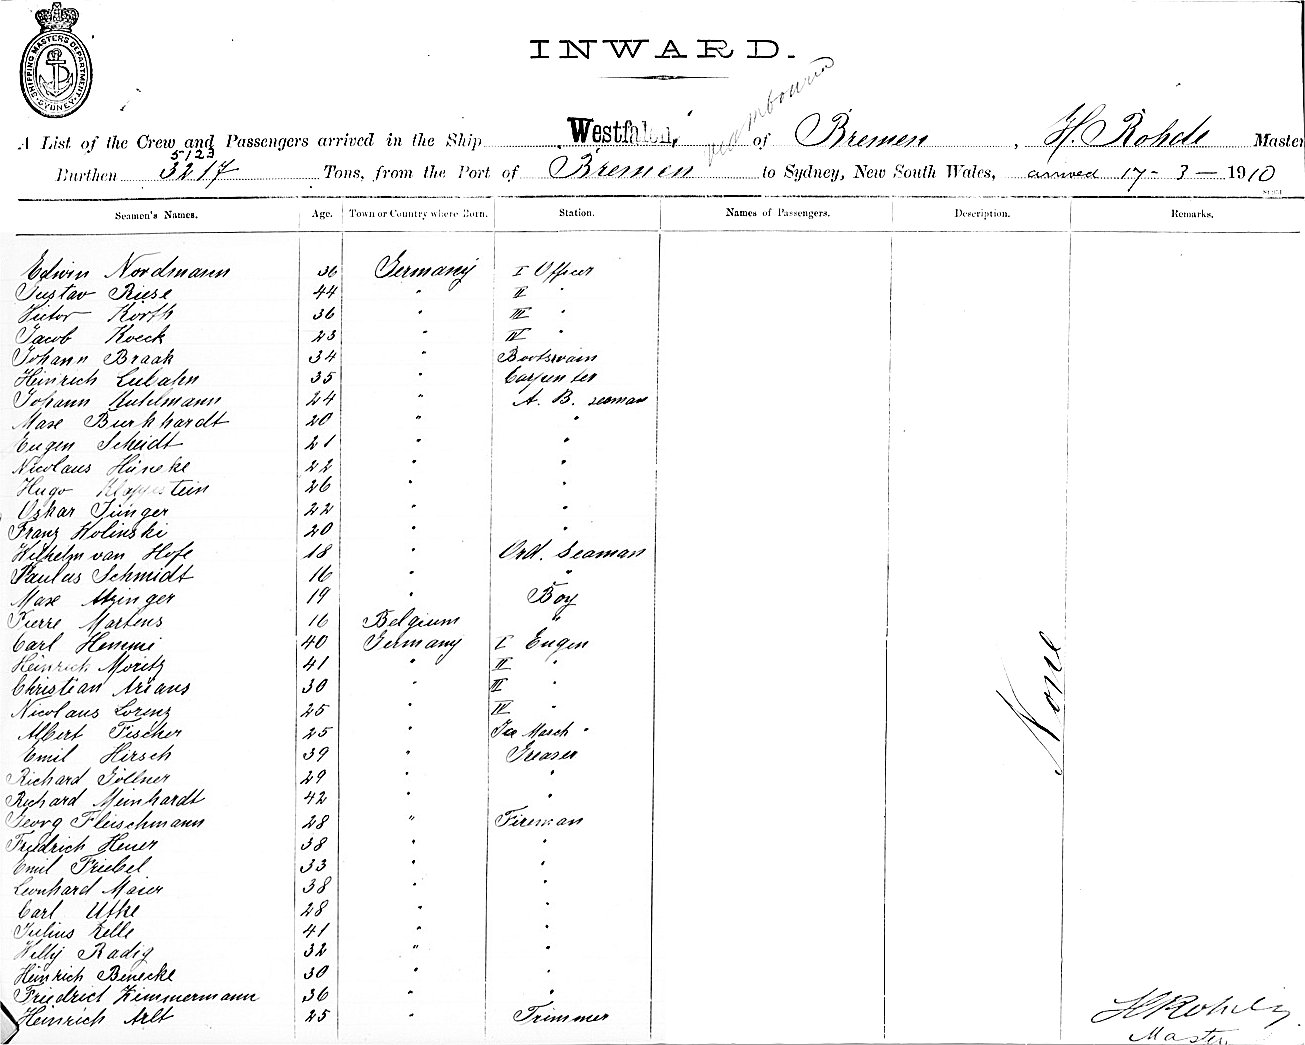 SHIPPING MASTER'S DEPARTMENT
SYDNEY
INWARD.
Melbourne
A List of the Crew and Passengers arrived in the Ship Westfalen, of Bremen, H. Rohde Master
5123
Burthen 3217 Tons, from the Port of Bremen to Sydney, New South Wales, arrived 17-3-1910
Seamen's Names. Age. Town or Country where Born. Station. Names of Passengers. Description. Remarks.
Edwin Nordmann 36 Germany I Officer
Gustav Riese 44 " II "
Victor Korth 36 " III "
Jacob Koeck 23 " IV "
Johann Braak 34 " Bootswain
Heinrich Lubahn 35 " Carpenter
Johann 24 " A. B. seaman
Max Burkhardt 20 " "
Eugen Scheidt 21 " "
Nicolaus Hüneke 22 " "
Hugo Kloppstein 26 " "
Oskar Jünger 22 " "
Franz Kolinski 20 " "
Wilhelm van Hofe 18 " Ord. Seaman
Paulus Schmidt 16 " "
Max Atzinger 19 " Boy
Pierre Martens 16 Belgium "
Carl Hemmi 40 Germany I Engen
Heinrich Moritz 41 " II "
Christian Arians 30 " III "
Nicolaus Lorenz 25 " IV "
Albert Fischer 25 " Ice Mach "
Emil Hirsch 39 " Greaser
Richard Göllner 29 " "
Richard Meinhardt 42 " "
Georg Fleischmann 28 " Fireman
Friedrich Heuer 38 " "
Emil Friebel 33 " "
Leonhard Maier 38 " "
Carl Uthe 28 " "
Julius Zelle 41 " "
Willy Radig 32 " "
Heinrich Benecke 30 " "
Friedrict Zimmermann 36 " "
Heinrich Arlt 25 " Trimmer
None
H Rohde
Master